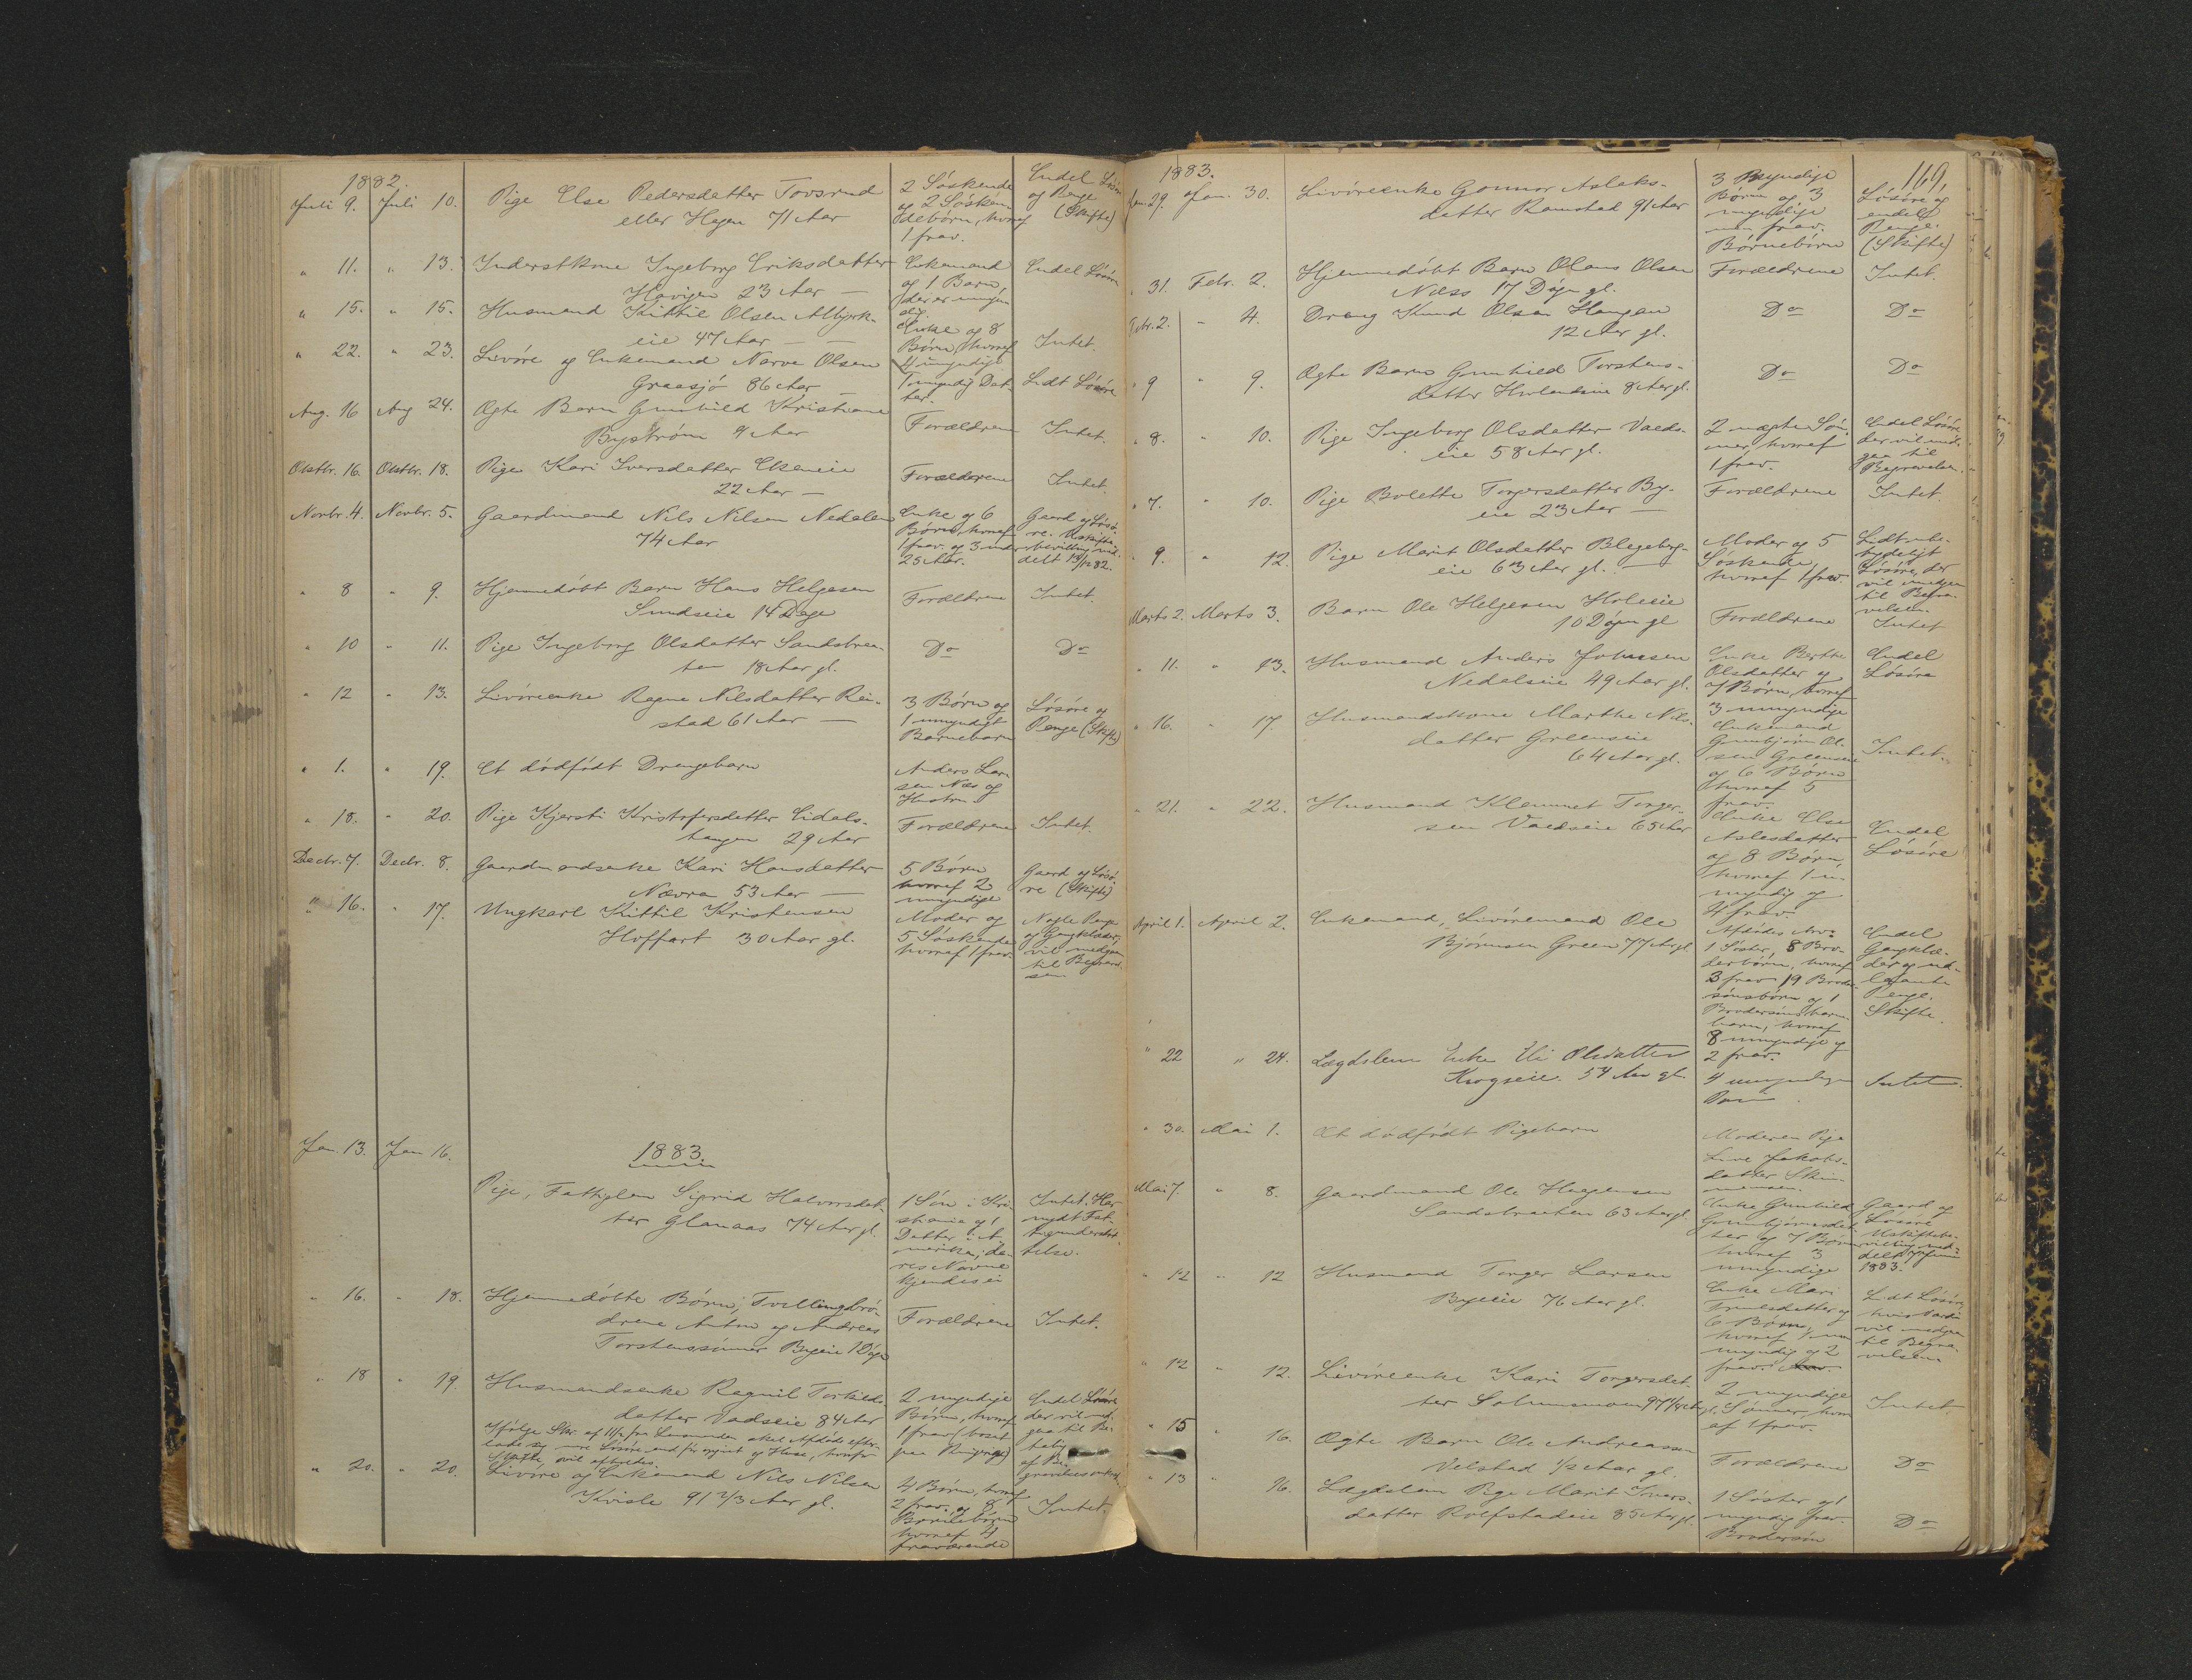 1882.
Juli 9. Juli 10. Pige Else Pedersdatter Tovsrud
eller Hagen 71 Aar
2 Söskende
og 2 Sösken-
debörn, hvoraf
1 frav.
Endel Lösöre
og Penge
(Skifte)
" 11. " 13. Inderstkone Ingeborg Eriksdatter
Havigen 23 Aar —
Enkemand
og 1 Barn,
der er umyn-
dig.
Endel Lösöre
" 15. " 15. Husmand Kittil Olsen
eie 47 Aar — —
Enke og 8
Börn, hvoraf
4 umyndige
Intet.
" 22. " 23. Livöre og Enkemand Narve Olsen
Graasjö 86 Aar
1 myndig Dat-
ter.
Lidt Lösöre
Aug. 16 Aug 24. Ægte Barn Gunhild Kristiane
Byström 9 Aar
Forældrene
Intet.
Oktbr. 16. Oktbr. 18. Pige Kari Iversdatter Ekeneie
22 Aar —
Forældrene
Intet.
Novbr. 4. Novbr. 5. Gaardmand Nils Nilsen Nedalen
74 Aar
Enke og 6
Börn, hvoraf
1 frav. og 3 under
25 Aar.
Gaard og Lösö-
re. Uskifte-
bevilling med-
delt 82.
" 8 " 9. Hjemmedöbt Barn Hans Helgesen
Sundseie 14 Dage
Forældrene
Intet.
" 10 " 11. Pige Ingeborg Olsdatter Sandstraa-
ten 18 Aar gl.
Do
Do
" 12 " 13. Livöreenke Ragne Nilsdatter Rei-
stad 61 Aar —
3 Börn og
1 umyndigt
Barnebarn
Lösöre og
Penge (Skifte)
" 1. " 19. Et dödfödt Drengebarn
Anders Lar-
sen Næs og
Hustru
" 18. " 20. Pige Kjersti Kristofersdatter Eidals-
haugen 29 Aar
Forældrene
Intet.
Decbr. 7. Decbr. 8. Gaardmandsenke Kari Hansdatter
Nævra 53 Aar —
5 Börn
hvoraf 2
umyndige
Gaard og Lösö-
re (Skifte)
" 16. " 17. Ungkarl Kittil Kristensen
Hoffart 30 Aar gl.
Moder og
5 Söskende
hvoraf 1 frav.
Nogle Penge
og Gangklæder,
vil medgaa
til Begravel-
sen
1883.
Jan. 13. Jan 16.
Pige, Fattiglem Sigrid Halvorsdat-
ter Glanaas 74 Aar gl.
1 Sön i Kri-
stiania og 1
Datter i A-
merika; de-
res Navne
kjendes ei
Intet. Har
nydt Fat-
tigunderstöt-
telse.
" 16. " 18. Hjemmedöbte Börn, Tvillingbrö-
drene Anton og Andreas
Torstenssönner Byeeie 1 Dögn
Forældrene
Intet.
" 18 " 19. Husmandsenke Ragnil Torkilds-
datter Vadseie 84 Aar
2 myndige
Börn, hvoraf
1 frav. (bosat
paa Ringerige)
Endel Lösöre
der vil med-
gaa til Be-
taling
af Be-
gravelsesomkost.
Ifölge Skr. af fra Lensmanden skal Afdöde efter-
lade sig
Skifte vil afholdes.
" 20. " 20. Livöre og Enkemand Nils Nilsen
Kvisle 91 2/3 Aar gl.
4 Börn, hvoraf
2 frav. og 8
Barnebörn
hvoraf 4
fraværende
Intet.
1883.
169.
Jan. 29. Jan. 30. Livöreenke Gonnor Aslaks-
datter Ramstad 91 Aar
3 Myndige
Börn og 3
myndige
frav.
Börnebörn
Lösöre og
endel
Penge.
(Skifte)
" 31. Febr. 2. Hjemmedöbt Barn Olaus Olsen
Næss 17 Dögn gl.
Forældrene
Intet.
Febr. 2. " 4. Dreng Knud Olsen Haugen
12 Aar gl.
Do
Do
" 9 " 9. Ægte Barn Gunhild Torstens-
datter Hvlandseie 8 Aar gl.
Do
Do
" 8. " 10. Pige Ingeborg Olsdatter Vaeds-
eie 58 Aar gl.
2 uægte Sön-
ner, hvoraf
1 frav.
Endel Lösöre
der vil med-
gaa til
Begravelsen.
" 7. " 10. Pige Bolette Torgersdatter By-
eie 23 Aar —
Forældrene
Intet.
" 9. " 12. Pige Marit Olsdatter Blegeberg-
eie 63 Aar gl. —
Moder og 5
Söskende,
hvoraf 1 frav.
Lidt ube-
tydeligt
Lösöre, der
vil medgaa
til Begra-
velsen.
Marts 2. Marts 3. Barn Ole Helgesen Holeeie
10 Dögn gl
Forældrene
Intet
" 11. " 13. Husmand Anders Johnsen
Nedalseie 49 Aar gl.
Enke Berthe
Olsdatter og
7 Börn, hvoraf
3 umyndige
Endel
Lösöre
" 16. " 17. Husmandskone Marthe Nils-
datter Greenseie
64 Aar gl.
Enkemand
Gunbjörn Ol-
sen Greenseie
og 6 Börn
hvoraf 5
frav.
Intet.
" 21. " 22. Husmand Klemmet Torger-
sen Vaedseie 65 Aar
Enke Else
Aslesdatter
og 8 Börn,
hvoraf 1 u-
myndig og
4 frav.
Endel
Lösöre
April 1. April 2. Enkemand, Livöremand Ole
Björnsen Green 77 Aar gl.
Afdödes Arv:
1 Söster, 8 Bro-
derbörn, hvoraf
3 frav. 19 Broder-
sönsbörn og 1
Brodersönsbarne-
barn, hvoraf
8 umyndige og
2 frav.
Endel
Gangklæ-
der og ud-
laante
Penge.
Skifte.
" 22 " 24. Lægdslem Enke Eli Olsdatter
Krogseie. 54 Aar gl.
4 umyndige
Börn.
Intet.
" 30. Mai 1. Et dödfödt Pigebarn
Moderen Pige
Live Jakobs-
datter
Mai 7. " 8. Gaardmand Ole Haagensen
Sandstraaten 63 Aar gl.
Enke Gunhild
Gunbjörnsdat-
ter og 7 Börn
hvoraf 3
umyndige
Gaard og
Lösöre
Uskiftebe-
villing med-
delt Juni
1883.
" 12 " 12 Husmand Torger Larsen
Byeeie 76 Aar gl.
Enke Mari
Truelsdatter og
6 Börn,
hvoraf 1 u-
myndig og 2
frav.
Lidt Lösöre,
hvis Værdi
vil medgaa
til Begra-
velsen.
" 12 " 12. Livöreenke Kari Torgersdat-
ter
2 myndige
Sönner, hvor-
af 1 frav.
Intet
" 15 " 16. Ægte Barn Ole Andreassen
Velstad 1/2 Aar gl.
Forældrene
Do
" 13 " 16. Lægdslem Pige Marit Ivers-
datter Rolfstadeie 85 Aar gl.
1 Söster og 1
myndig frav.
Brodersön
Do